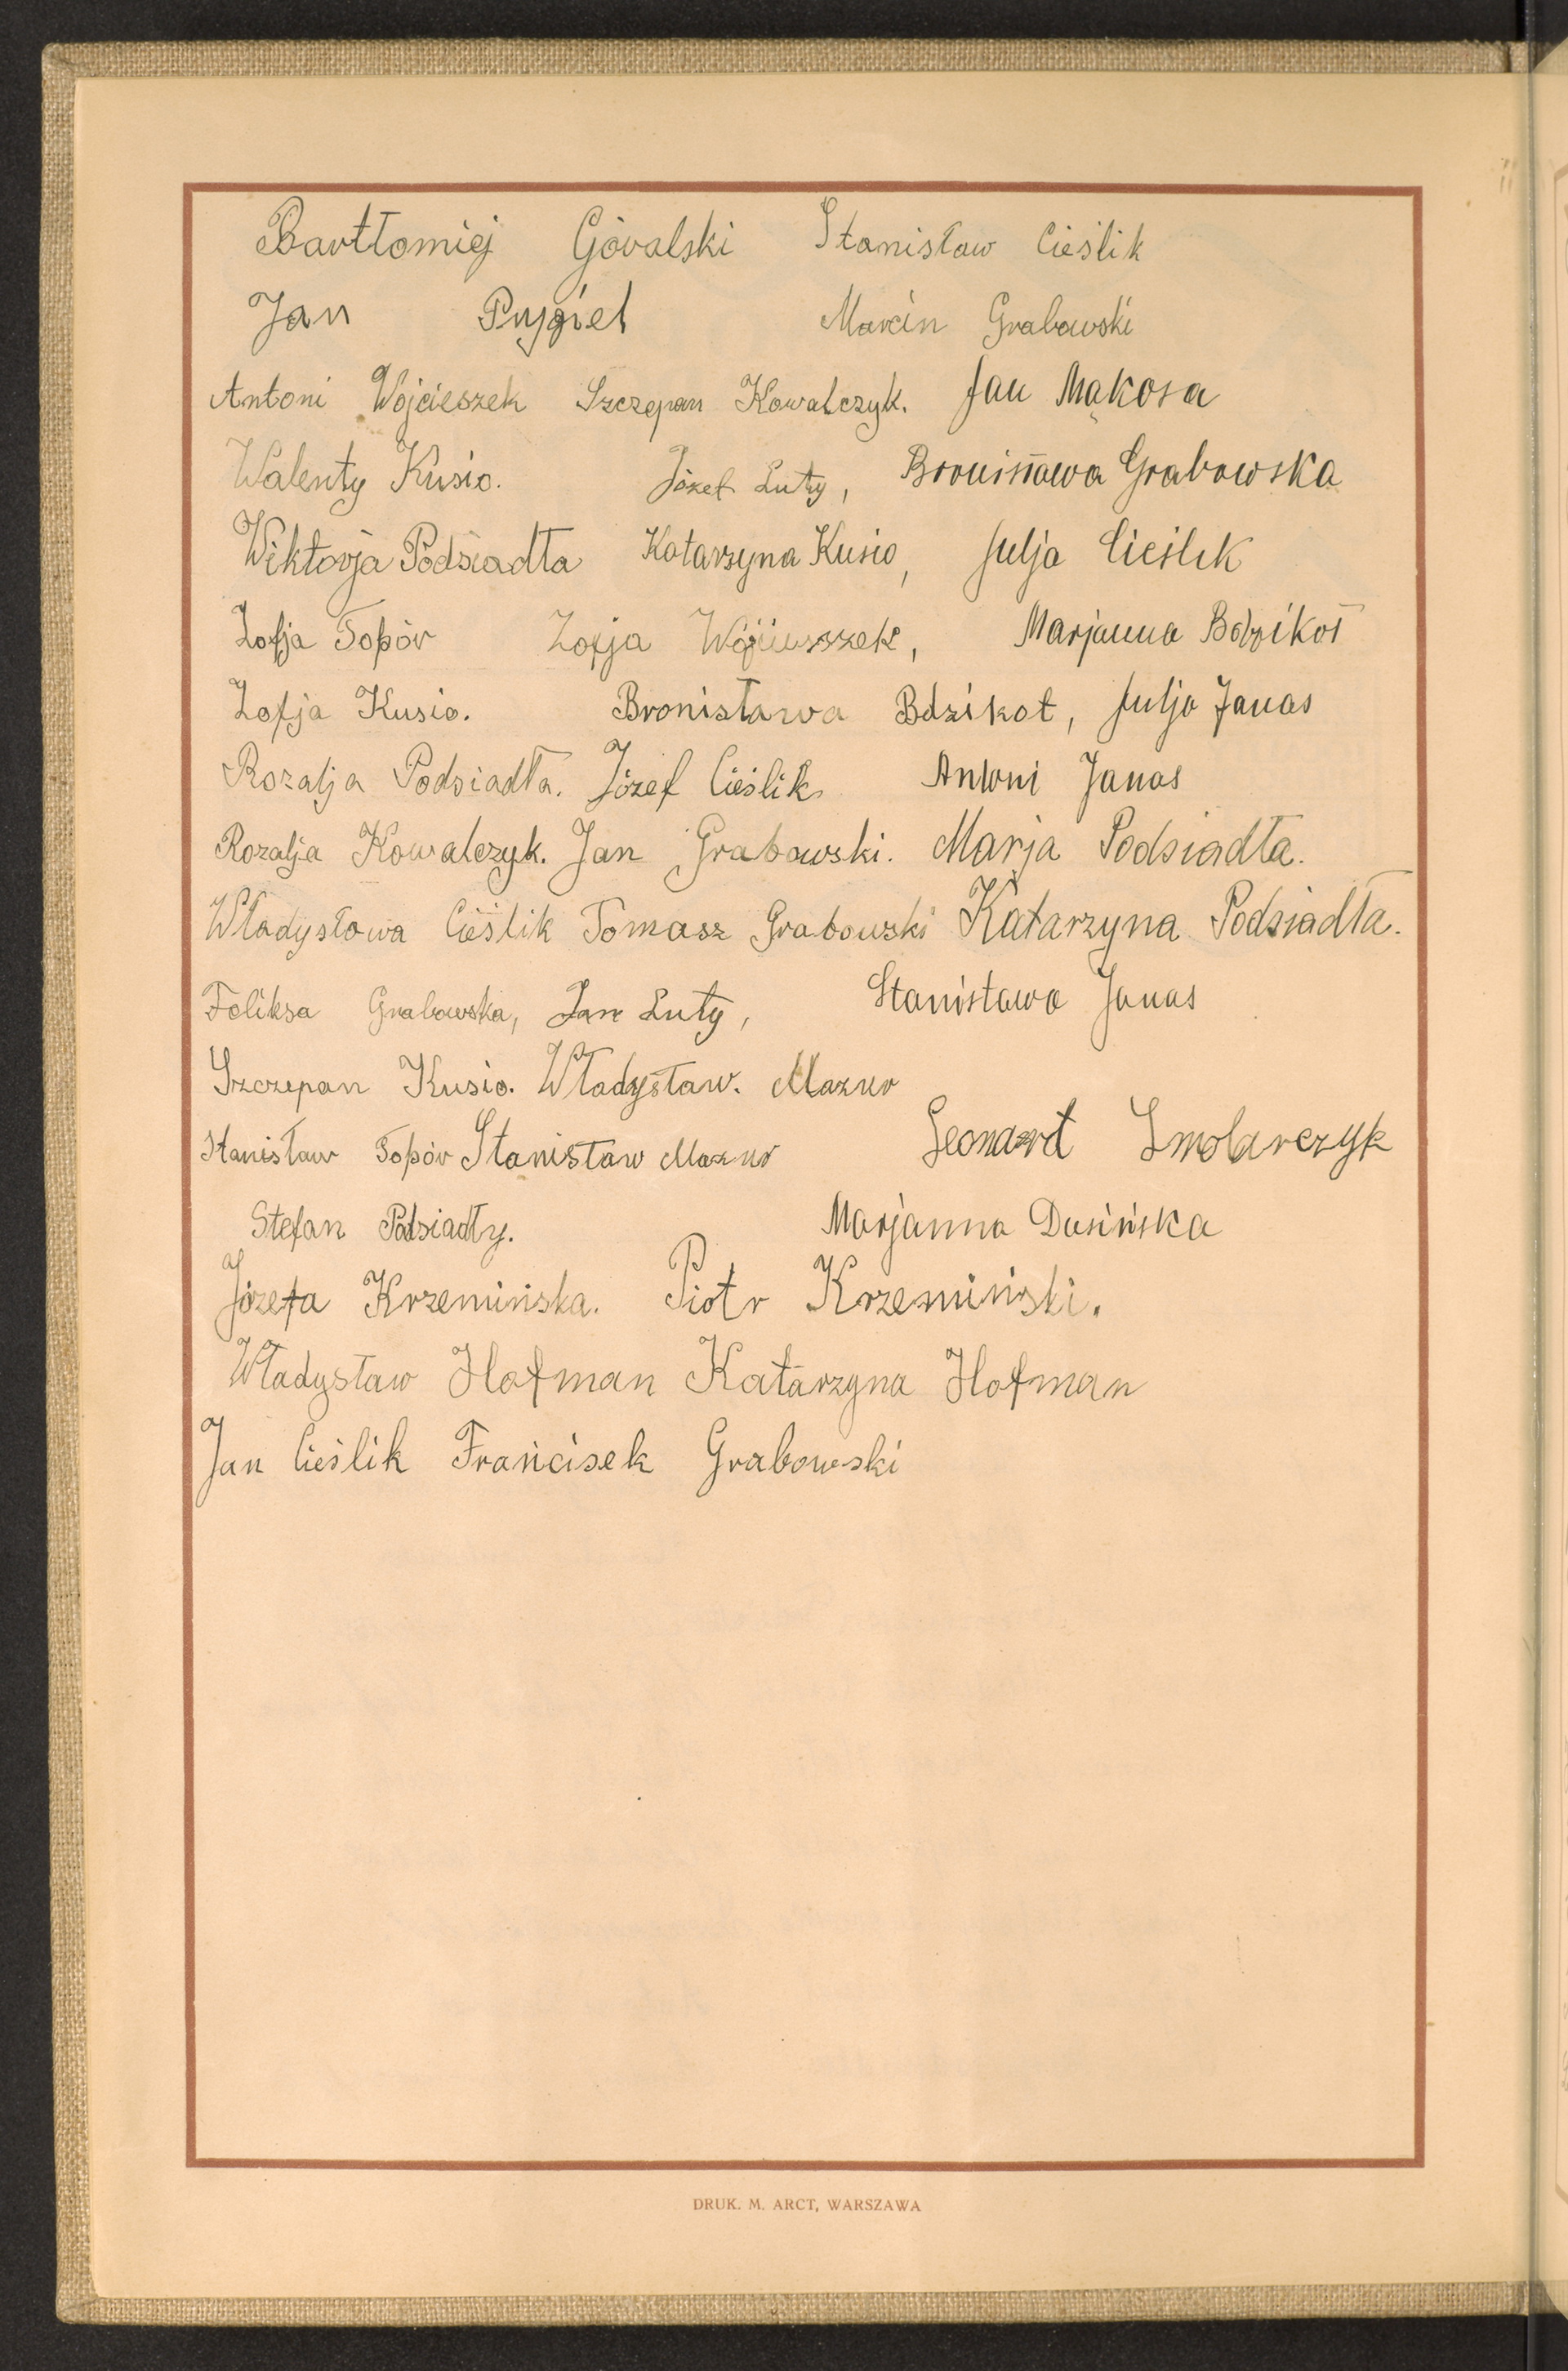 Bartłomiej Góralski Stanisław Cieślik
Jan Pugiel Marcin Grabowski
Antoni Wojcieszek Szczepan Kowalczyk. Jan Mąkosa
Walenty Kusio. Józef Luty, Bronisława Grabowska
Wiktorja Podsiadła Katarzyna Kusio, Julja Cieślik
Zofja Topór Zofja Marjanna Bdzikot
Zofja Kusio. Bronisława Bdzikot, Julja Janas
Rozalja Podsiadła. Józef Cieślik Antoni Janas
Rozalja Kowalczyk. Jan Grabowski. Marja Podsiadła.
Władysława Cieślik Tomasz Grabowski Katarzyna Podsiadła.
Feliksa Grabowska, Jan Luty, Stanisława Janas
Szczepan Kusio. Władysław. Mazur
Stanisław Topór Stanisław Mazur Leonard Smolarczyk
Stefan Podsiadły. Marjanna Dusińska
Józefa Krzemińska. Piotr Krzemiński.
Władysław Hofman Katarzyna Hofman
Jan Cieślik Frańcisek Grabowski
DRUK. M. ARCT, WARSZAWA